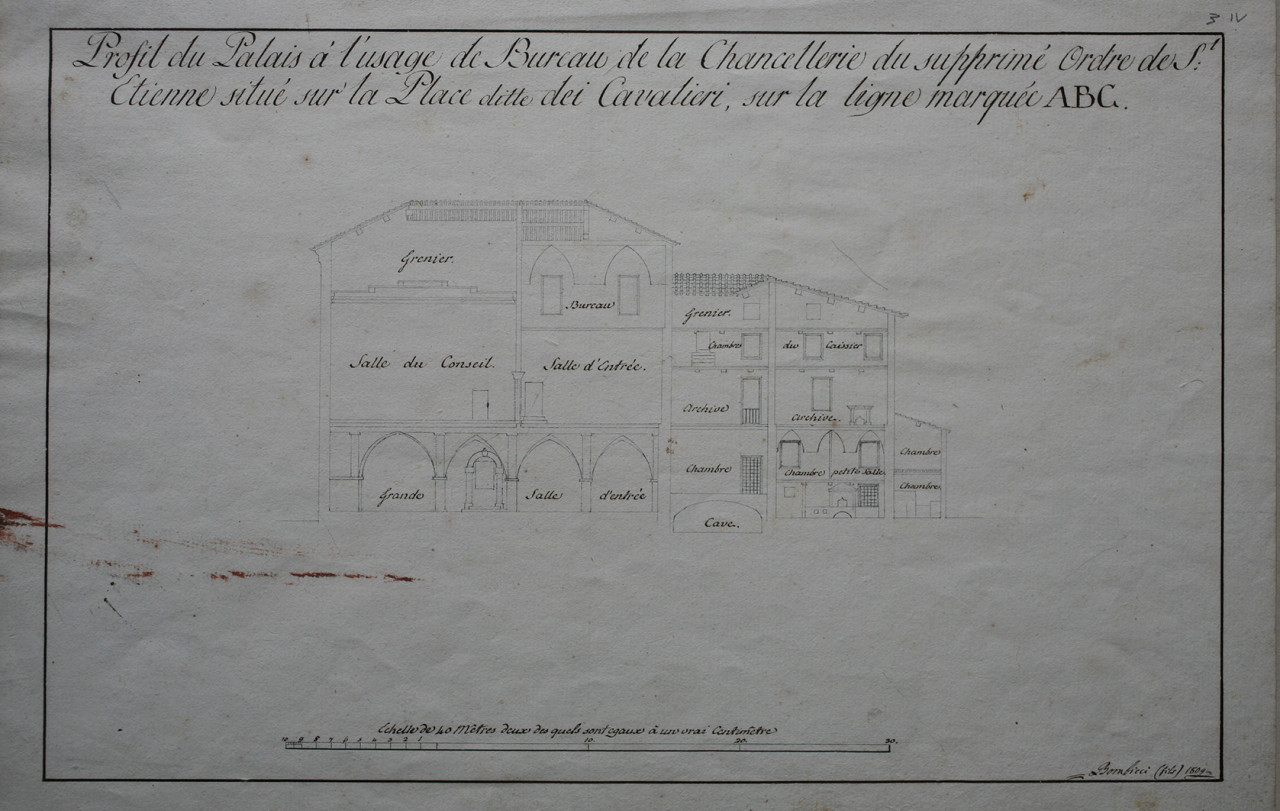 3 IV
Profil du Palais à l'usage de Bureau de la Chancellerie du supprimé Ordre de S.t
Etienne situé sur la Place ditte dei Cavalieri, sur la ligne marquée ABC.
Grenier.
Bureau
Grenier.
Chambres du Caissier
Salle du Conseil. Salle d'Entrée.
Archive Archive.
Chambre
Chambre Chambre petite Salle
Grande Salle d'entrée Chambre
Cave.
Echelle de 40 Mètres deux des quels sont egaux à un vrai Centimètre
10 9 8 7 6 5 4 3 2 1 10. 20. 30.
(fils)